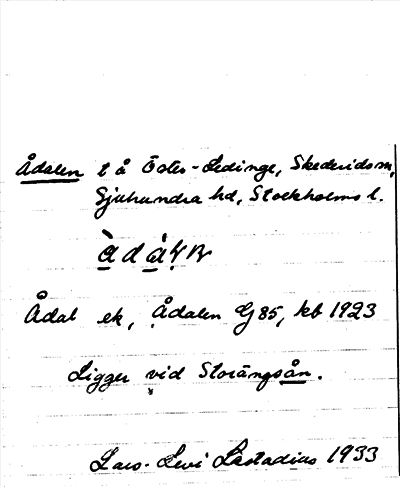 Ådalen t å Öster-Ledinge, Skederids sn,
Sjuhundra hd, Stockholms l.
Ådal ek, Ådalen G 85, kb 1923
Ligger vid Storängsån.
Lars-Levi Læstadius 1933